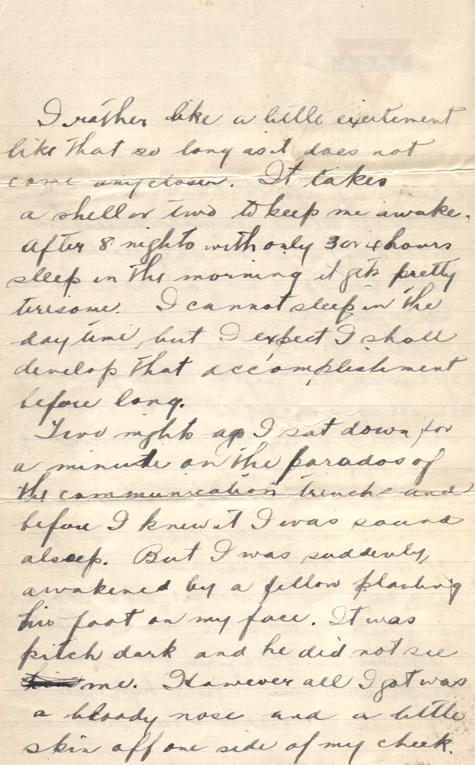 I rather like a little excitement
like that so long as it does not
come any closer. It takes
a shell or two to keep me awake.
After 8 nights with only 3 or 4 hours
sleep in the morning it gets pretty
teresome. I cannot sleep in the
day time, but I expect I shall
develop that accomplishment
before long.
Two nights ago I sat down for
a minute on the parados of
the communication trench and
before I knew it I was sound
alseep. But I was suddenly,
awakened by a fellow planting
his foot on my face. It was
pitch dark and he did not see
me. However all I got was
a bloody nose and a little
skin off one side of my cheek.